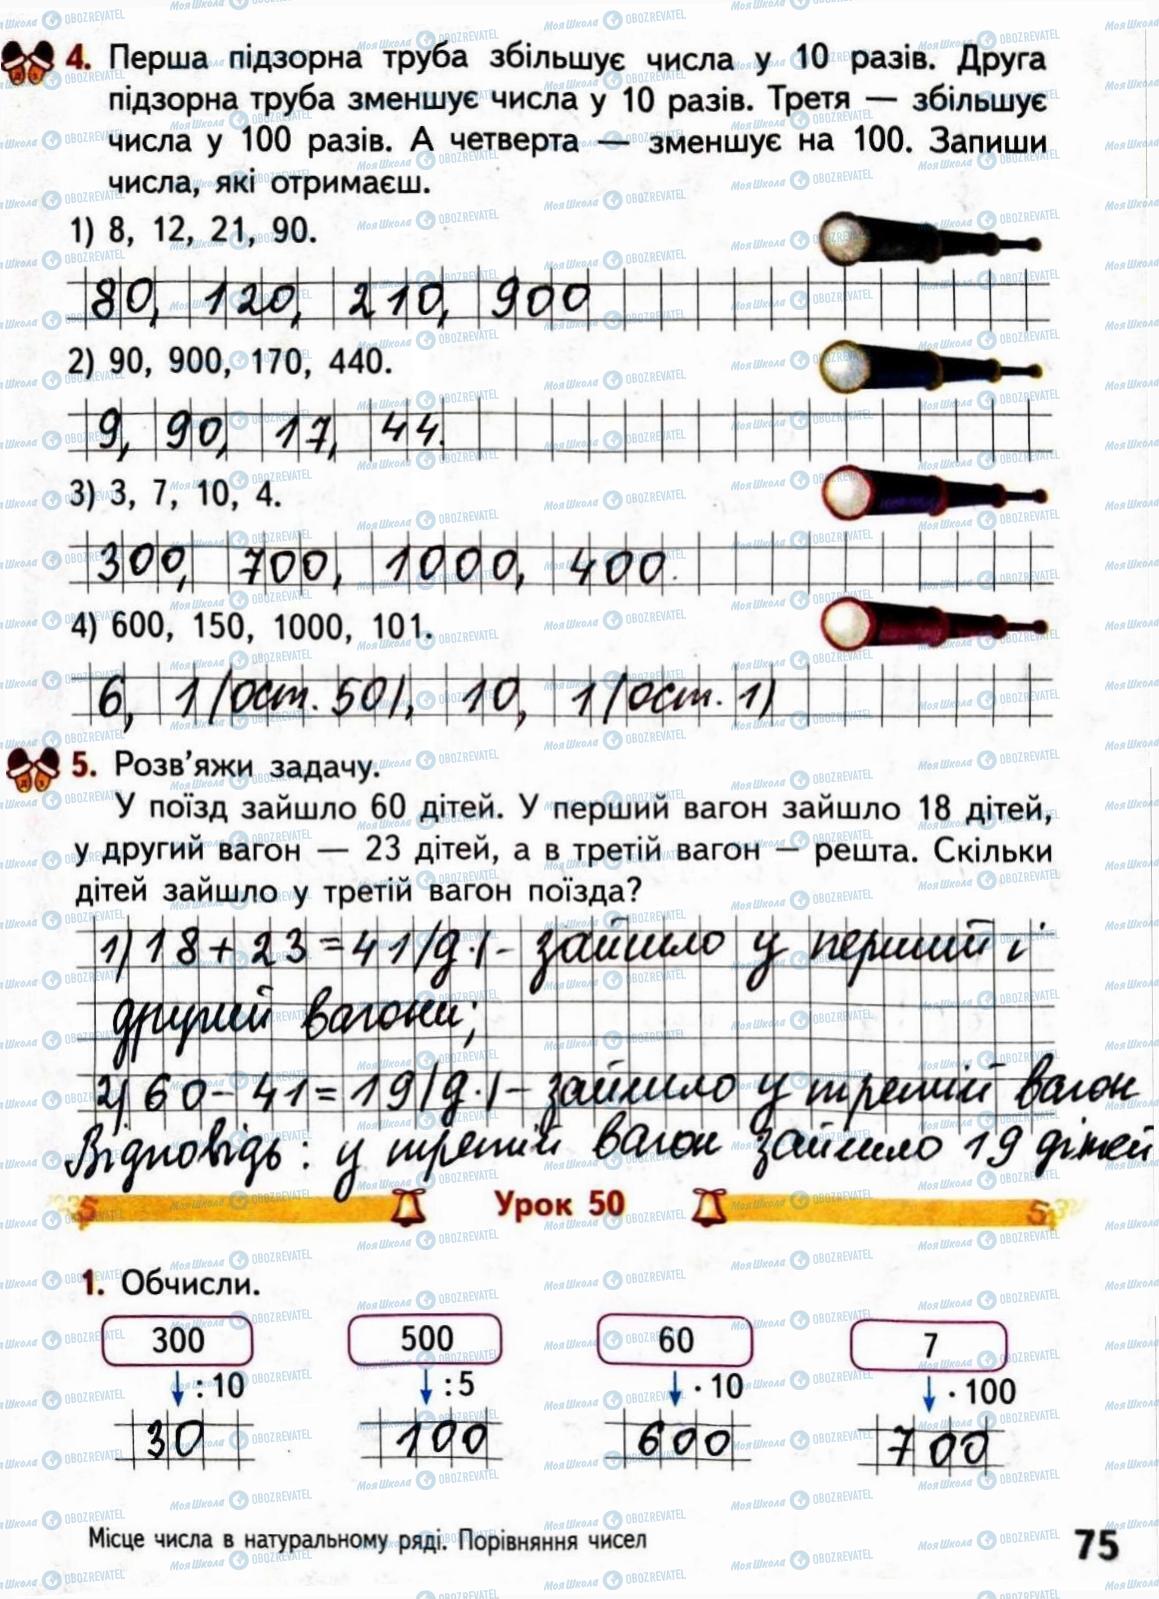 4. Перша підзорна труба збільшує числа у 10 разів. Друга
підзорна труба зменшує числа у 10 разів. Третя — збільшує
числа у 100 разів. А четверта — зменшує на 100. Запиши
числа, які отримаєш.
1) 8, 12, 21, 90.
80, 120, 210, 900
2) 90, 900, 170, 440.
9, 90, 17, 44.
3) 3, 7, 10, 4.
300, 700, 1000, 400.
4) 600, 150, 1000, 101.
6, 1 (ост. 50), 10, 1 (ост. 1)
5. Розв'яжи задачу.
У поїзд зайшло 60 дітей. У перший вагон зайшло 18 дітей,
у другий вагон — 23 дітей, а в третій вагон — решта. Скільки
дітей зайшло у третій вагон поїзда?
1) 18 + 23 = 41 (д.) - зайшло у перший і
другий вагони;
2) 60 - 41 = 19 (д.) - зайшло у третій вагон
Відповідь: у третій вагон зайшло 19 дітей
Урок 50
1. Обчисли.
300 500 60 7
: 10 : 5 · 10 · 100
30 100 600 700
Місце числа в натуральному ряді. Порівняння чисел
75
МояШкола OBOZREVATEL